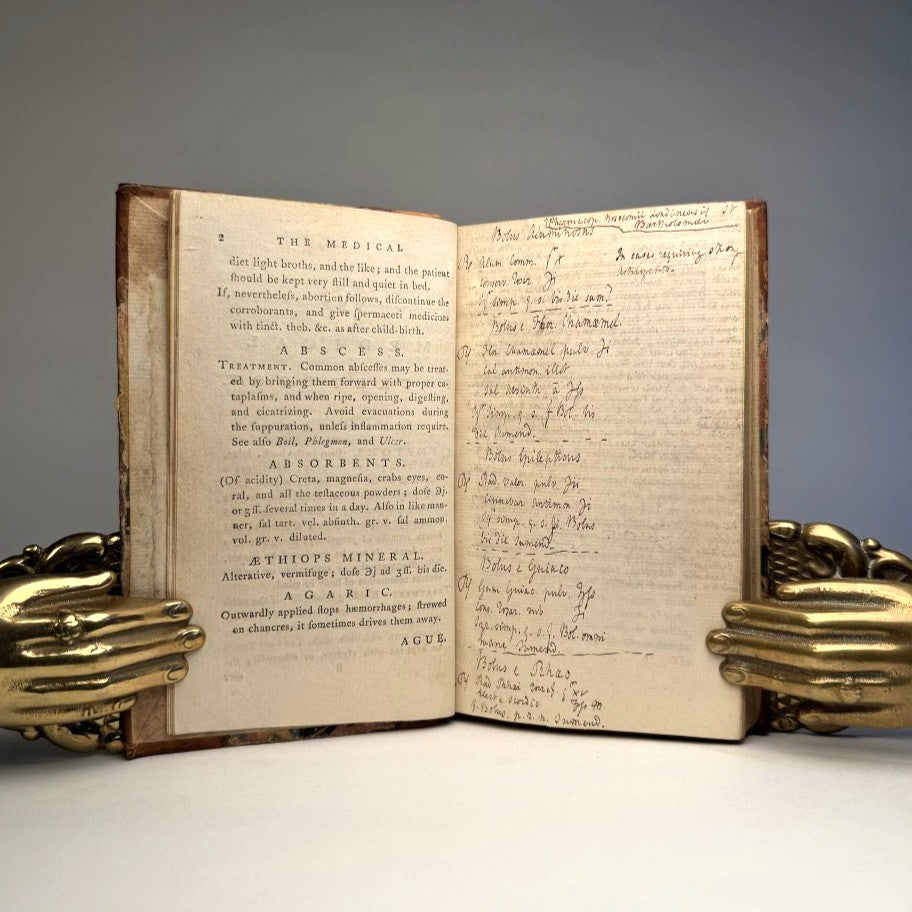 2 THE MEDICAL
diet light broths, and the like; and the patient
ſhould be kept very ſtill and quiet in bed.
If, nevertheleſs, abortion follows, diſcontinue the
corroborants, and give ſpermaceti medicines
with tinct. theb. &c. as after child-birth.
ABSCESS.
TREATMENT. Common abſceſſes may be treat-
ed by bringing them forward with proper ca-
taplaſms, and when ripe, opening, digeſting,
and cicatrizing. Avoid evacuations during
the ſuppuration, unleſs inflammation require.
See alſo Boil, Phlegmon, and Ulcer.
ABSORBENTS.
(Of acidity) Creta, magneſia, crabs eyes, co-
ral, and all the teſtaceous powders; doſe ℈j.
or ʒſſ. ſeveral times in a day. Alſo in like man-
ner, ſal tart. vel. abſinth. gr. v. ſal ammon.
vol. gr. v. diluted.
ÆTHIOPS MINERAL.
Alterative, vermifuge; doſe ℈j ad ʒſſ. bis die.
AGARIC.
Outwardly applied ſtops hæmorrhages; ſtrewed
on chancres, it ſometimes drives them away.
AGUE,
Pharmacop. Nosocomii Londinensis St
Bartholomei
Bolus Aluminosus
In cases requiring strong
℞ Alum. Comm.
Conserv. Rosar
Syr simp. q. s. bis die sum.
Bolus e Flor. Chamæmel.
℞ Flor. Chamæmel pulv.
Cal antimon. illot
Sal Absinth. a
Syr simp. q. s. f Bol. bis
die Sumend.
Bolus Epilepticus
℞ Rad. Valer. pulv
Cinnabar Antimon.
Syr simp. q. s. f. Bolus
bis die Sumend.
Bolus e Guaiaco
℞ Gum Guaiac. pulv.
Con. Rosar. rub
Syr. simp. q. s. f. Bol. omni
mane Sumend.
Bolus e Rhæo
℞ Rad Rhæi torref.
Elect e Scordio
f. Bolus. p. r. n. Sumend.